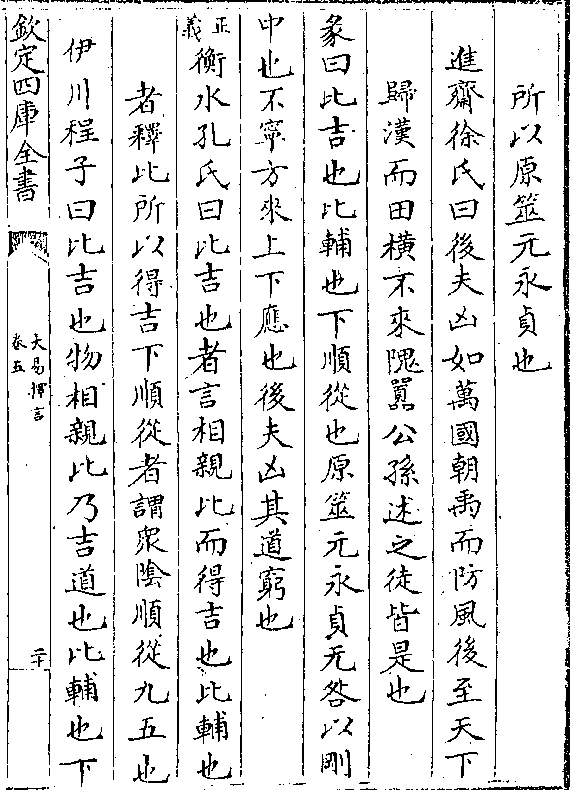 所以原筮元永貞也
進齋徐氏曰後夫凶如萬國朝禹而防風後至天下
歸漢而田橫不來隗囂公孫述之徒皆是也
彖曰比吉也比輔也下順從也原筮元永貞无咎以剛
中也不寧方來上下應也後夫凶其道窮也
正義衡水孔氏曰比吉也者言相親比而得吉也比輔也
者釋比所以得吉下順從者謂衆陰順從九五也
伊川程子曰比吉也物相親比乃吉道也比輔也下
欽定四庫全書
大易擇言
卷五
二十